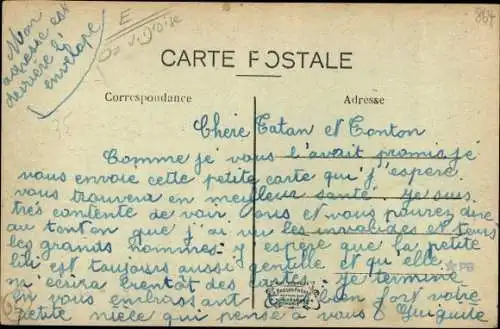 Mon
adresse est
derrière l'
envelope
E
Val d'Oise
867
CARTE POSTALE
Correspondance
Adresse
Chère Tatan et Tonton
Comme je vous l'avait promis je
vous envoie cette petite carte qui j'espère
vous trouvera en meilleur santé. Je suis
très contente de voir ous et vous pourez dire
au tonton que j'ai vu les invalides et tous
les grands hommes. y espère que la petite
lili est toujours aussi gentille et qu'elle
m'ecrira bientôt des cartes. Je termine
en vous embrassant bien fort votre
petite niece qui pense à vous Guiguite